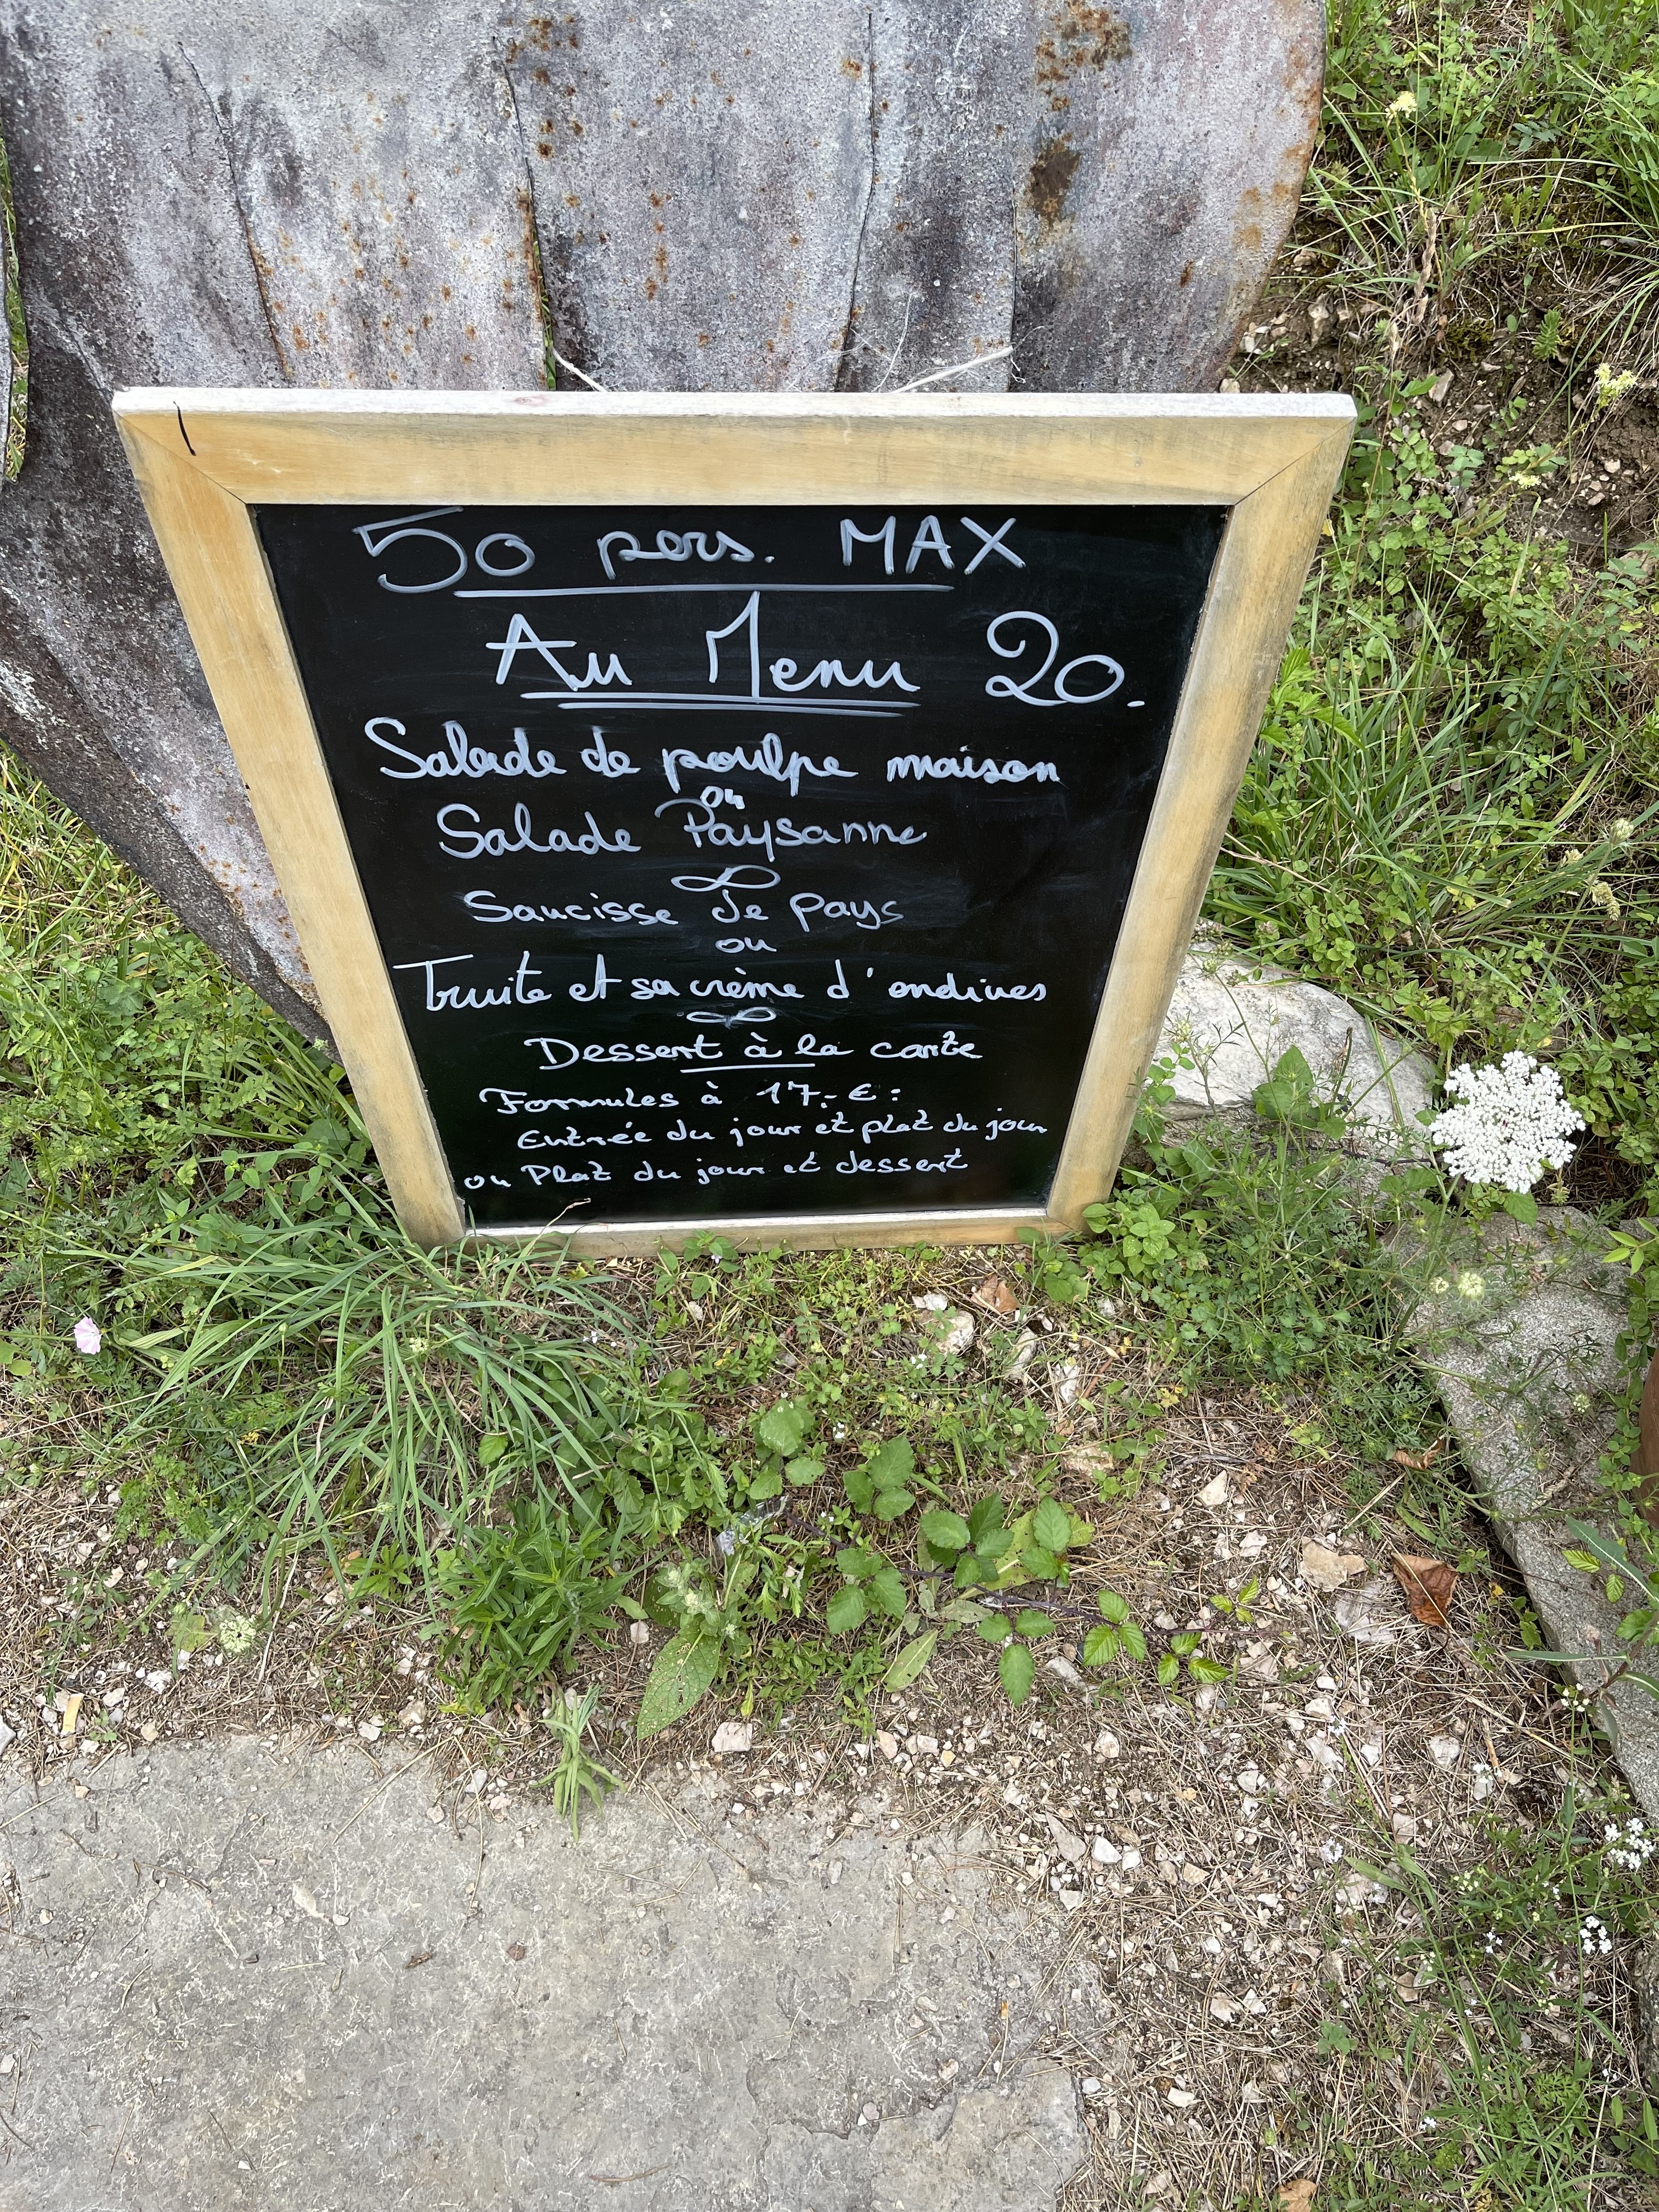 50 pers. MAX
Au Menu 20.-
Salade de poulpe maison
ou
Salade Paysanne
Saucisse de pays
ou
Truite et sa crème d'endives
Dessert à la carte
Formules à 17.- € :
Entrée du jour et plat du jour
ou Plat du jour et dessert